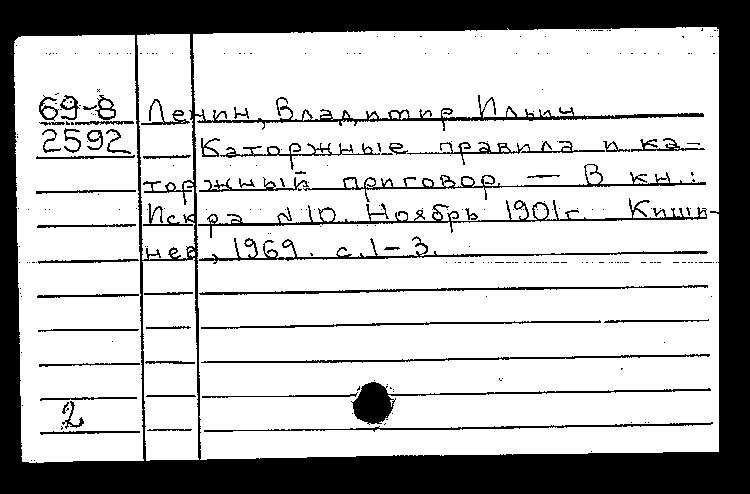 69-8 Ленин, Владимир Ильич
2592 Каторжные правила и ка-
торжный приговор. — В кн.:
Искра N 10. Ноябрь 1901г. Киши-
нев, 1969. с. 1-3.
2